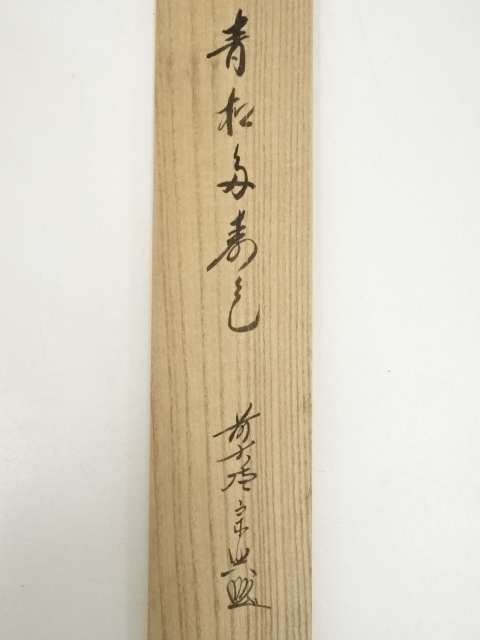 青松多寿色
前大徳宗